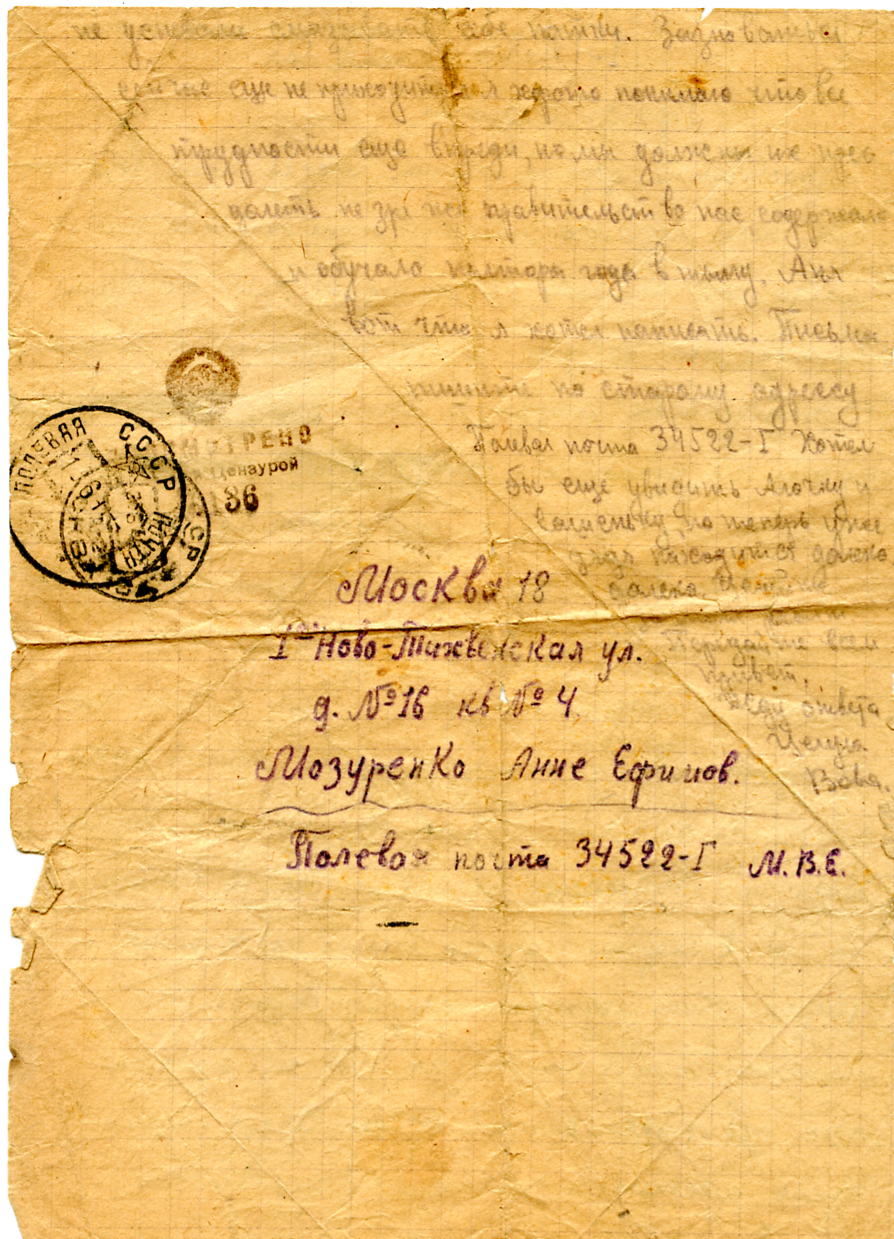 не успевали смазывать себе пятки. Зазноваться
сейчас еще не приходится я хорошо понимаю что все
трудности еще впереди, но мы должны их прео
долеть не зря же правительство нас содержало
и обучало полтора года в тылу. Аня
вот что я хотел написать. Письма
пишите по старому адресу
Полевая почта 34522-Г Хотел
бы еще увидить Алочку и
но теперь уже
дядя находится далеко
далеко.
Передайте всем
привет.
Жду ответа
Целую
Вова.
ПОЛЕВАЯ ПОЧТА
СССР
СМОТРЕНО
цензурой
136
Москва 18
Iая Ново-Тихвенская ул.
д. №16 кв №4
Мозуренко Анне Ефимов.
Полевая почта 34522-Г М.В.Е.